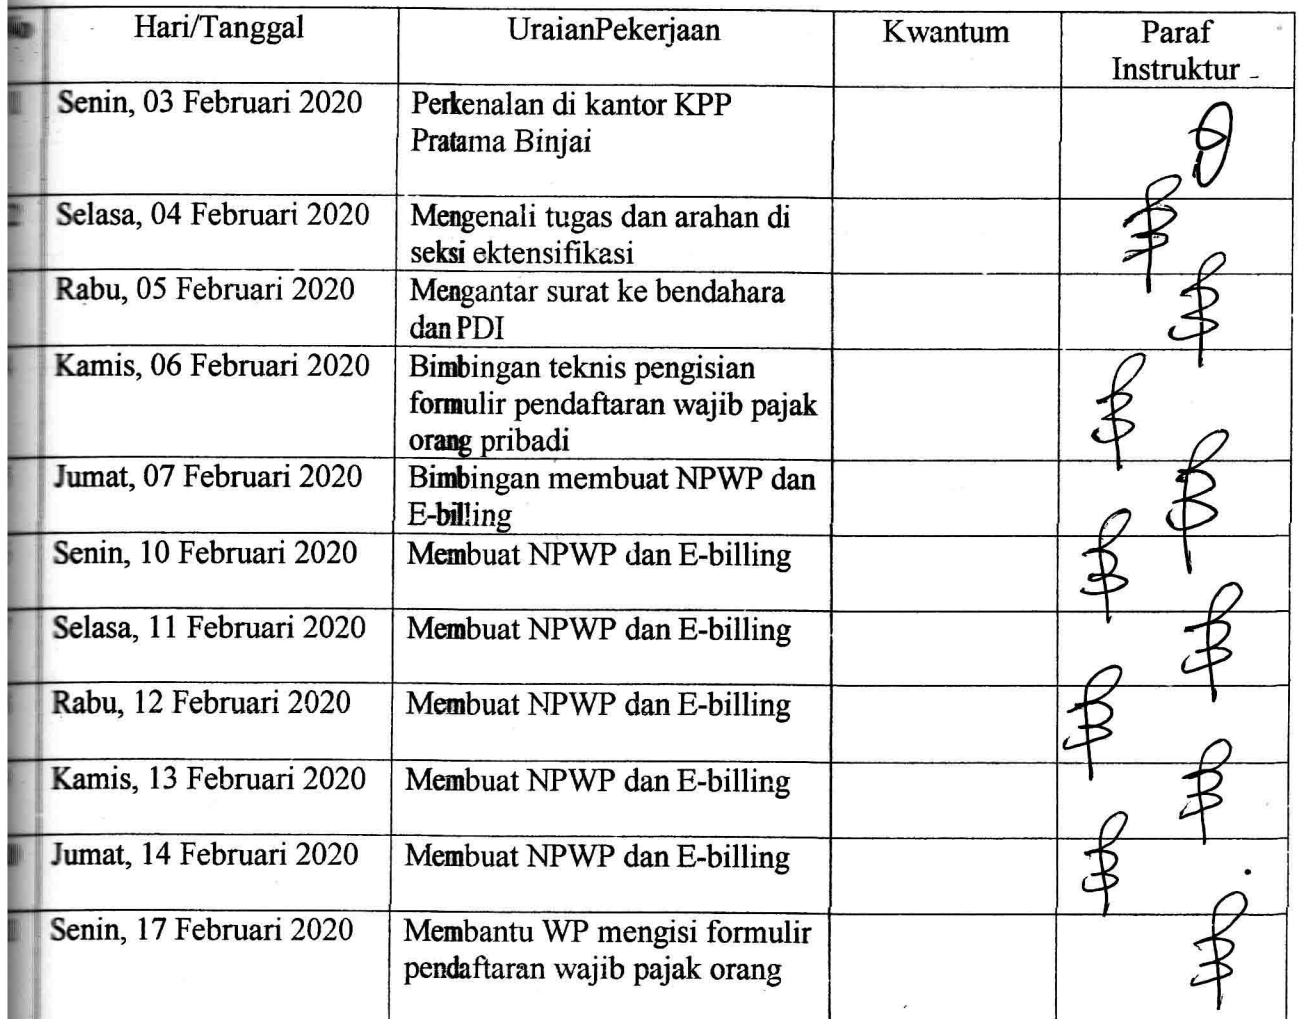 Hari/Tanggal UraianPekerjaan Kwantum Paraf
Instruktur
Senin, 03 Februari 2020 Perkenalan di kantor KPP
Pratama Binjai
Selasa, 04 Februari 2020 Mengenali tugas dan arahan di
seksi ektensifikasi
Rabu, 05 Februari 2020 Mengantar surat ke bendahara
dan PDI
Kamis, 06 Februari 2020 Bimbingan teknis pengisian
formulir pendaftaran wajib pajak
orang pribadi
Jumat, 07 Februari 2020 Bimbingan membuat NPWP dan
E-billing
Senin, 10 Februari 2020 Membuat NPWP dan E-billing
Selasa, 11 Februari 2020 Membuat NPWP dan E-billing
Rabu, 12 Februari 2020 Membuat NPWP dan E-billing
Kamis, 13 Februari 2020 Membuat NPWP dan E-billing
Jumat, 14 Februari 2020 Membuat NPWP dan E-billing
Senin, 17 Februari 2020 Membantu WP mengisi formulir
pendaftaran wajib pajak orang